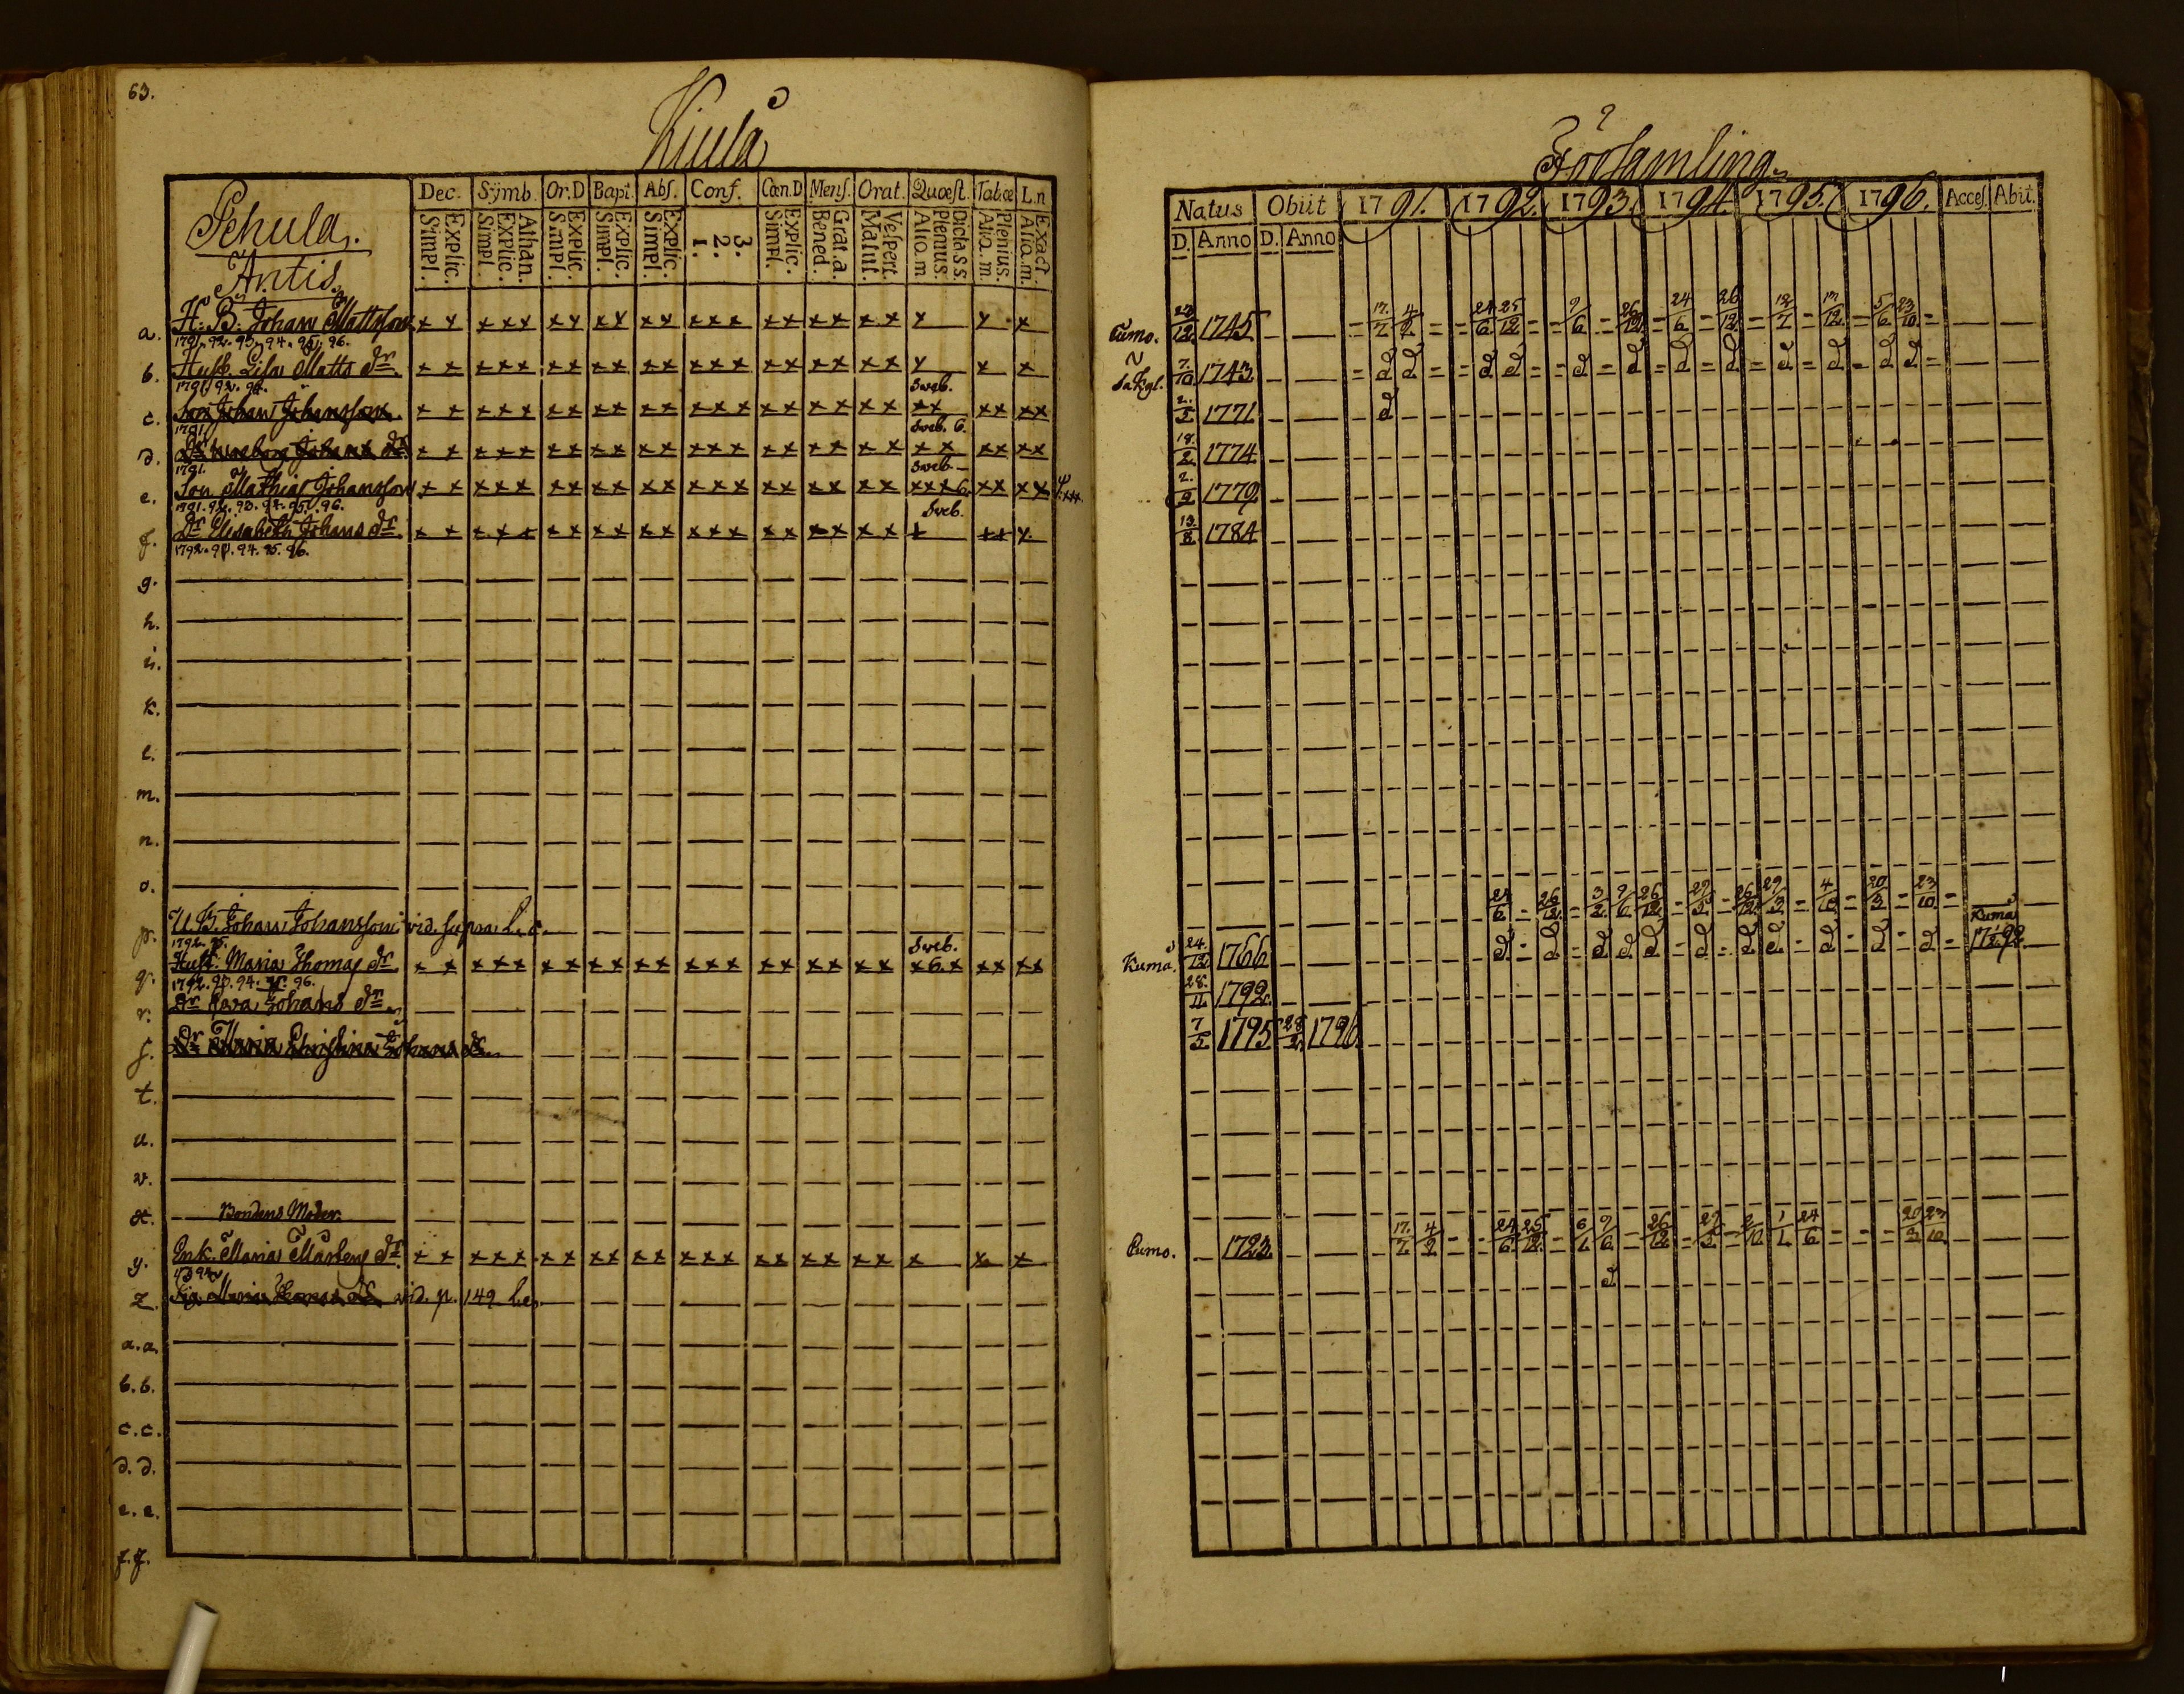 63.
Kiula
Pehula.
Antis.
Dec. Symb. Or.D Bapt. Abs. Conf. Cœn.D Mens. Orat. Quæst. Tab.œ L.n
Explic. Simpl.
Athan. Explic. Simpl.
Explic. Simpl.
Explic. Simpl.
Explic. Simpl.
3. 2. 1.
Explic. Simpl.
Grat.a. Bened.
Vespert. Matut.
Dicta S.S. Plenius. Aliq.m.
Plenius. Aliq.m.
Exact. Aliq.m.
a. H. B. Johan Mattsson x x x x x x x x x x x x x x x x x x x x x x x
1791. 92. 93. 94. 95. 96.
b. Hust. Lisa Matts dr. x x x x x x x x x x x x x x x x x x x x x x x
1791. 92. 94.
Sveb.
c. Son Johan Johansson. x x x x x x x x x x x x x x x x x x x x x x x x x x
1791.
Sveb. 6.
d. Johans dr. x x x x x x x x x x x x x x x x x x x x x x x x x x
1791.
Sveb.
e. Son Mathias Johansson x x x x x x x x x x x x x x x x x x x x x x x 6. x x x x
1791. 92. 93. 94. 95. 96.
Sveb.
f. Dr Elisabeth Johans dr. x x x x x x x x x x x x x x x x x x x x x x x x
1792. 93. 94. 95. 96.
g.
h.
i.
k.
l.
m.
n.
o.
p. U. B. Johan Johansson vid. supra l. c.
1792. 95.
Sveb.
q. Hust. Maria Thomas dr. x x x x x x x x x x x x x x x x x x x x 6. x x x x x
1792. 93. 94. 95. 96.
r. Dr Johans dr
s. Dr Maria Christina Johans dr
t.
u.
v.
x. Bondens Moder.
y. Enk. Maria Mårtens dr. x x x x x x x x x x x x x x x x x x x x x x x
z. Pig. Maria Thomas dr. vid. p. 149 l. e.
a.a.
b.b.
c.c.
d.d.
e.e.
f.f.
Församling
Natus Obiit 1791. 1792. 1793. 1794. 1795. 1796. Acces. Abit.
D. Anno D. Anno
Cumo. 22/12 1745 17/7 4/9 24/6 25/12 9/6 26/12 24/6 26/12 12/7 17/12 5/6 23/10
Säkyl. 7/10 1743 d d d d d d d d d d d d
2/5 1771 d
18/2 1774
2/9 1779
13/8 1784
24/6 26/12 3/2 9/6 26/12 29/5 26/12 29/3 4/10 20/3 23/10
Kumå. 24/12 1766 d d d d d d d d d d d Kumå 1792
28/11 1792
7/5 1795 28/2 1796
Cumo. 1723 17/7 4/9 24/6 25/12 6/1 9/6 26/12 29/5 2/10 1/1 24/6 20/3 23/10
d